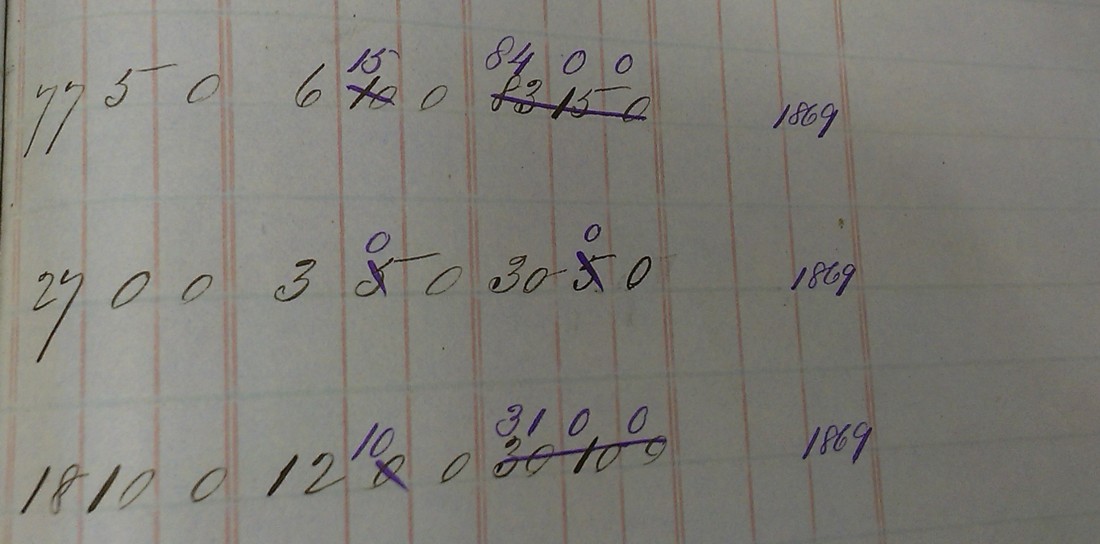 15 84 0 0
77 5 0 6 10 0 83 15 0 1869
0 0
27 0 0 3 5 0 30 5 0 1869
10 31 0 0
18 10 0 12 0 0 30 10 0 1869